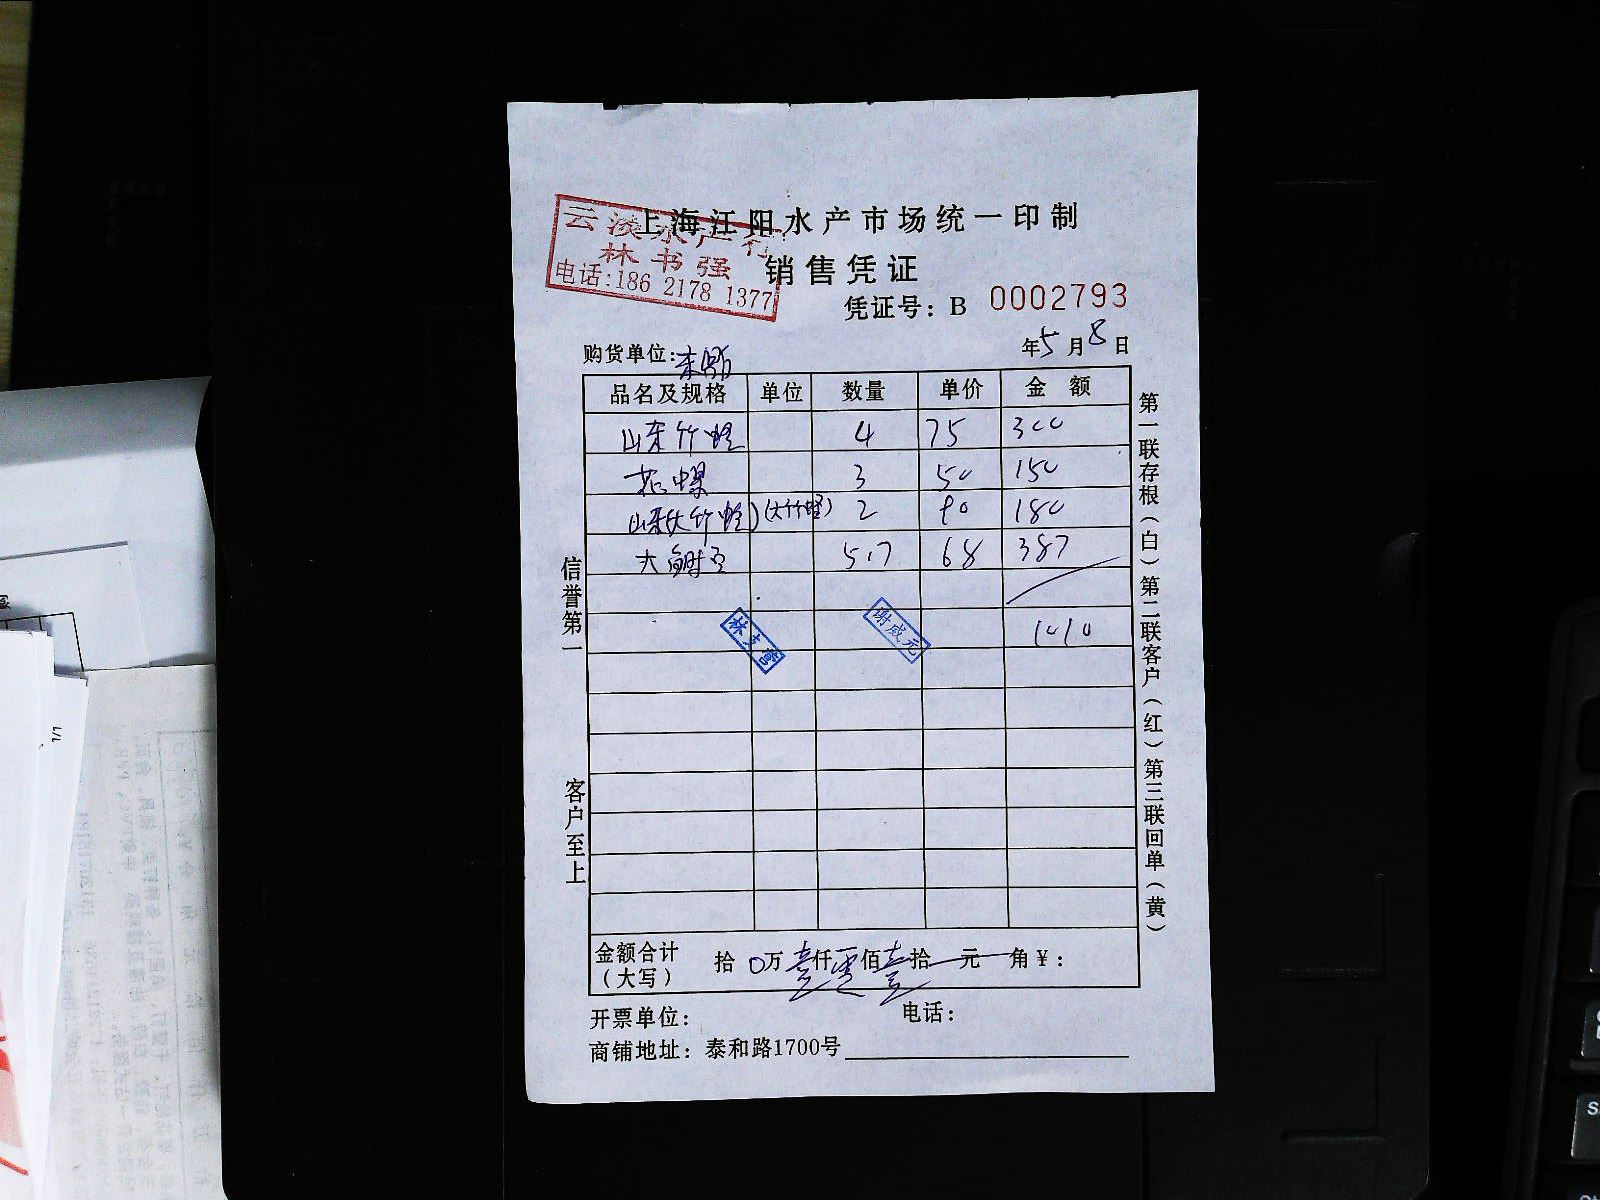 上海江阳水产市场统一印制
云淡水产行
林书强
电话:186 2178 1377
销售凭证
凭证号: B 0002793
购货单位:
年5月8日
品名及规格 单位 数量 单价 金额
山东竹蛏 4 75 300
花螺 3 50 150
山东大竹蛏 (大竹蛏) 2 90 180
大 5.7 68 387
1010
谢成元
信誉第一
客户至上
第一联存根(白)第二联客户(红)第三联回单(黄)
金额合计(大写) 拾0万壹仟零佰壹拾元角¥:
开票单位: 电话:
商铺地址: 泰和路1700号